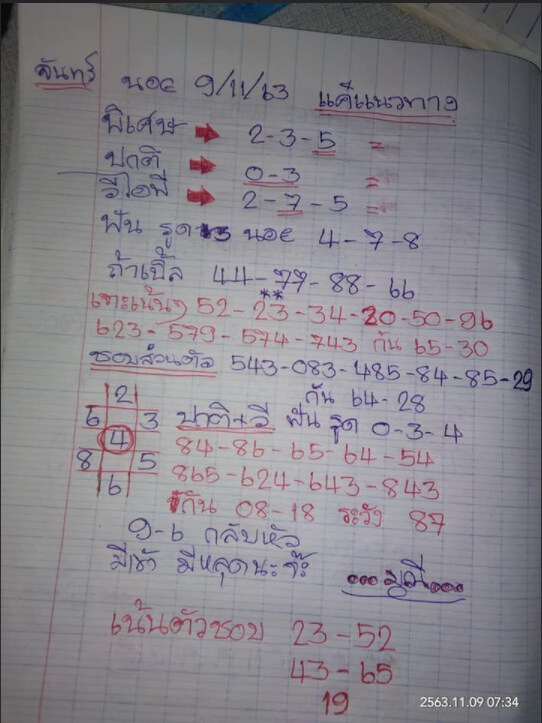 จันทร์ นอย 9/11/63 แค่แนวทาง
พิเศษ → 2-3-5 =
ปกติ → 0-3 =
วีไอพี → 2-7-5 =
ฟัน รูด นอย 4-7-8
ถ้าเบิ้ล 44-77-88-66
**
เจาะเน้นๆ 52-23-34-20-50-96
623-579-574-743 กัน 65-30
ชอบส่วนตัว 543-083-485-84-85-29
กัน 64-28
2
6 3 ปกติ+วี ฟัน รูด 0-3-4
4 84-86-65-64-54
8 5 865-624-643-843
6 กัน 08-18 ระวัง 87
9-6 กลับหัว
มีเข้า มีหลุดนะจ๊ะ ...มูมี...
เน้นตัวชอบ 23-52
43-65
19
2563.11.09 07:34